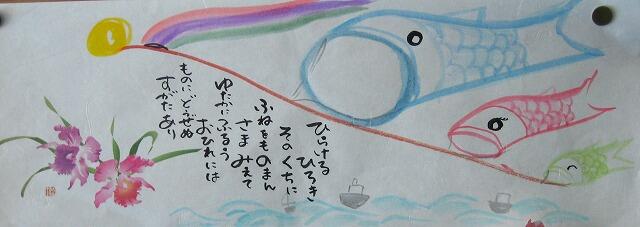 ひらける
ひろき
そのくちに
ふねをものまん
さま みえて
ゆたかにふるう
おひれには
ものにどうぜぬ
すがたあり